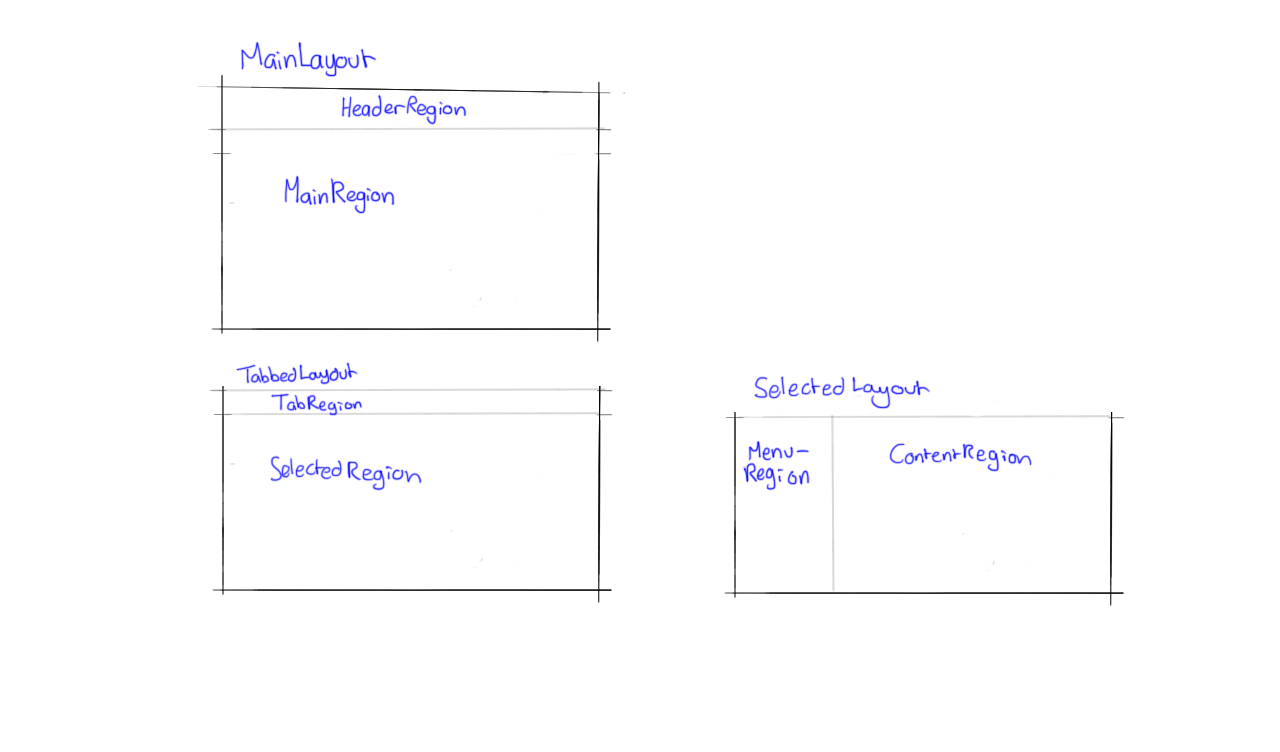 MainLayout
HeaderRegion
MainRegion
TabbedLayout
TabRegion
SelectedRegion
SelectedLayout
Menu-
Region
ContentRegion